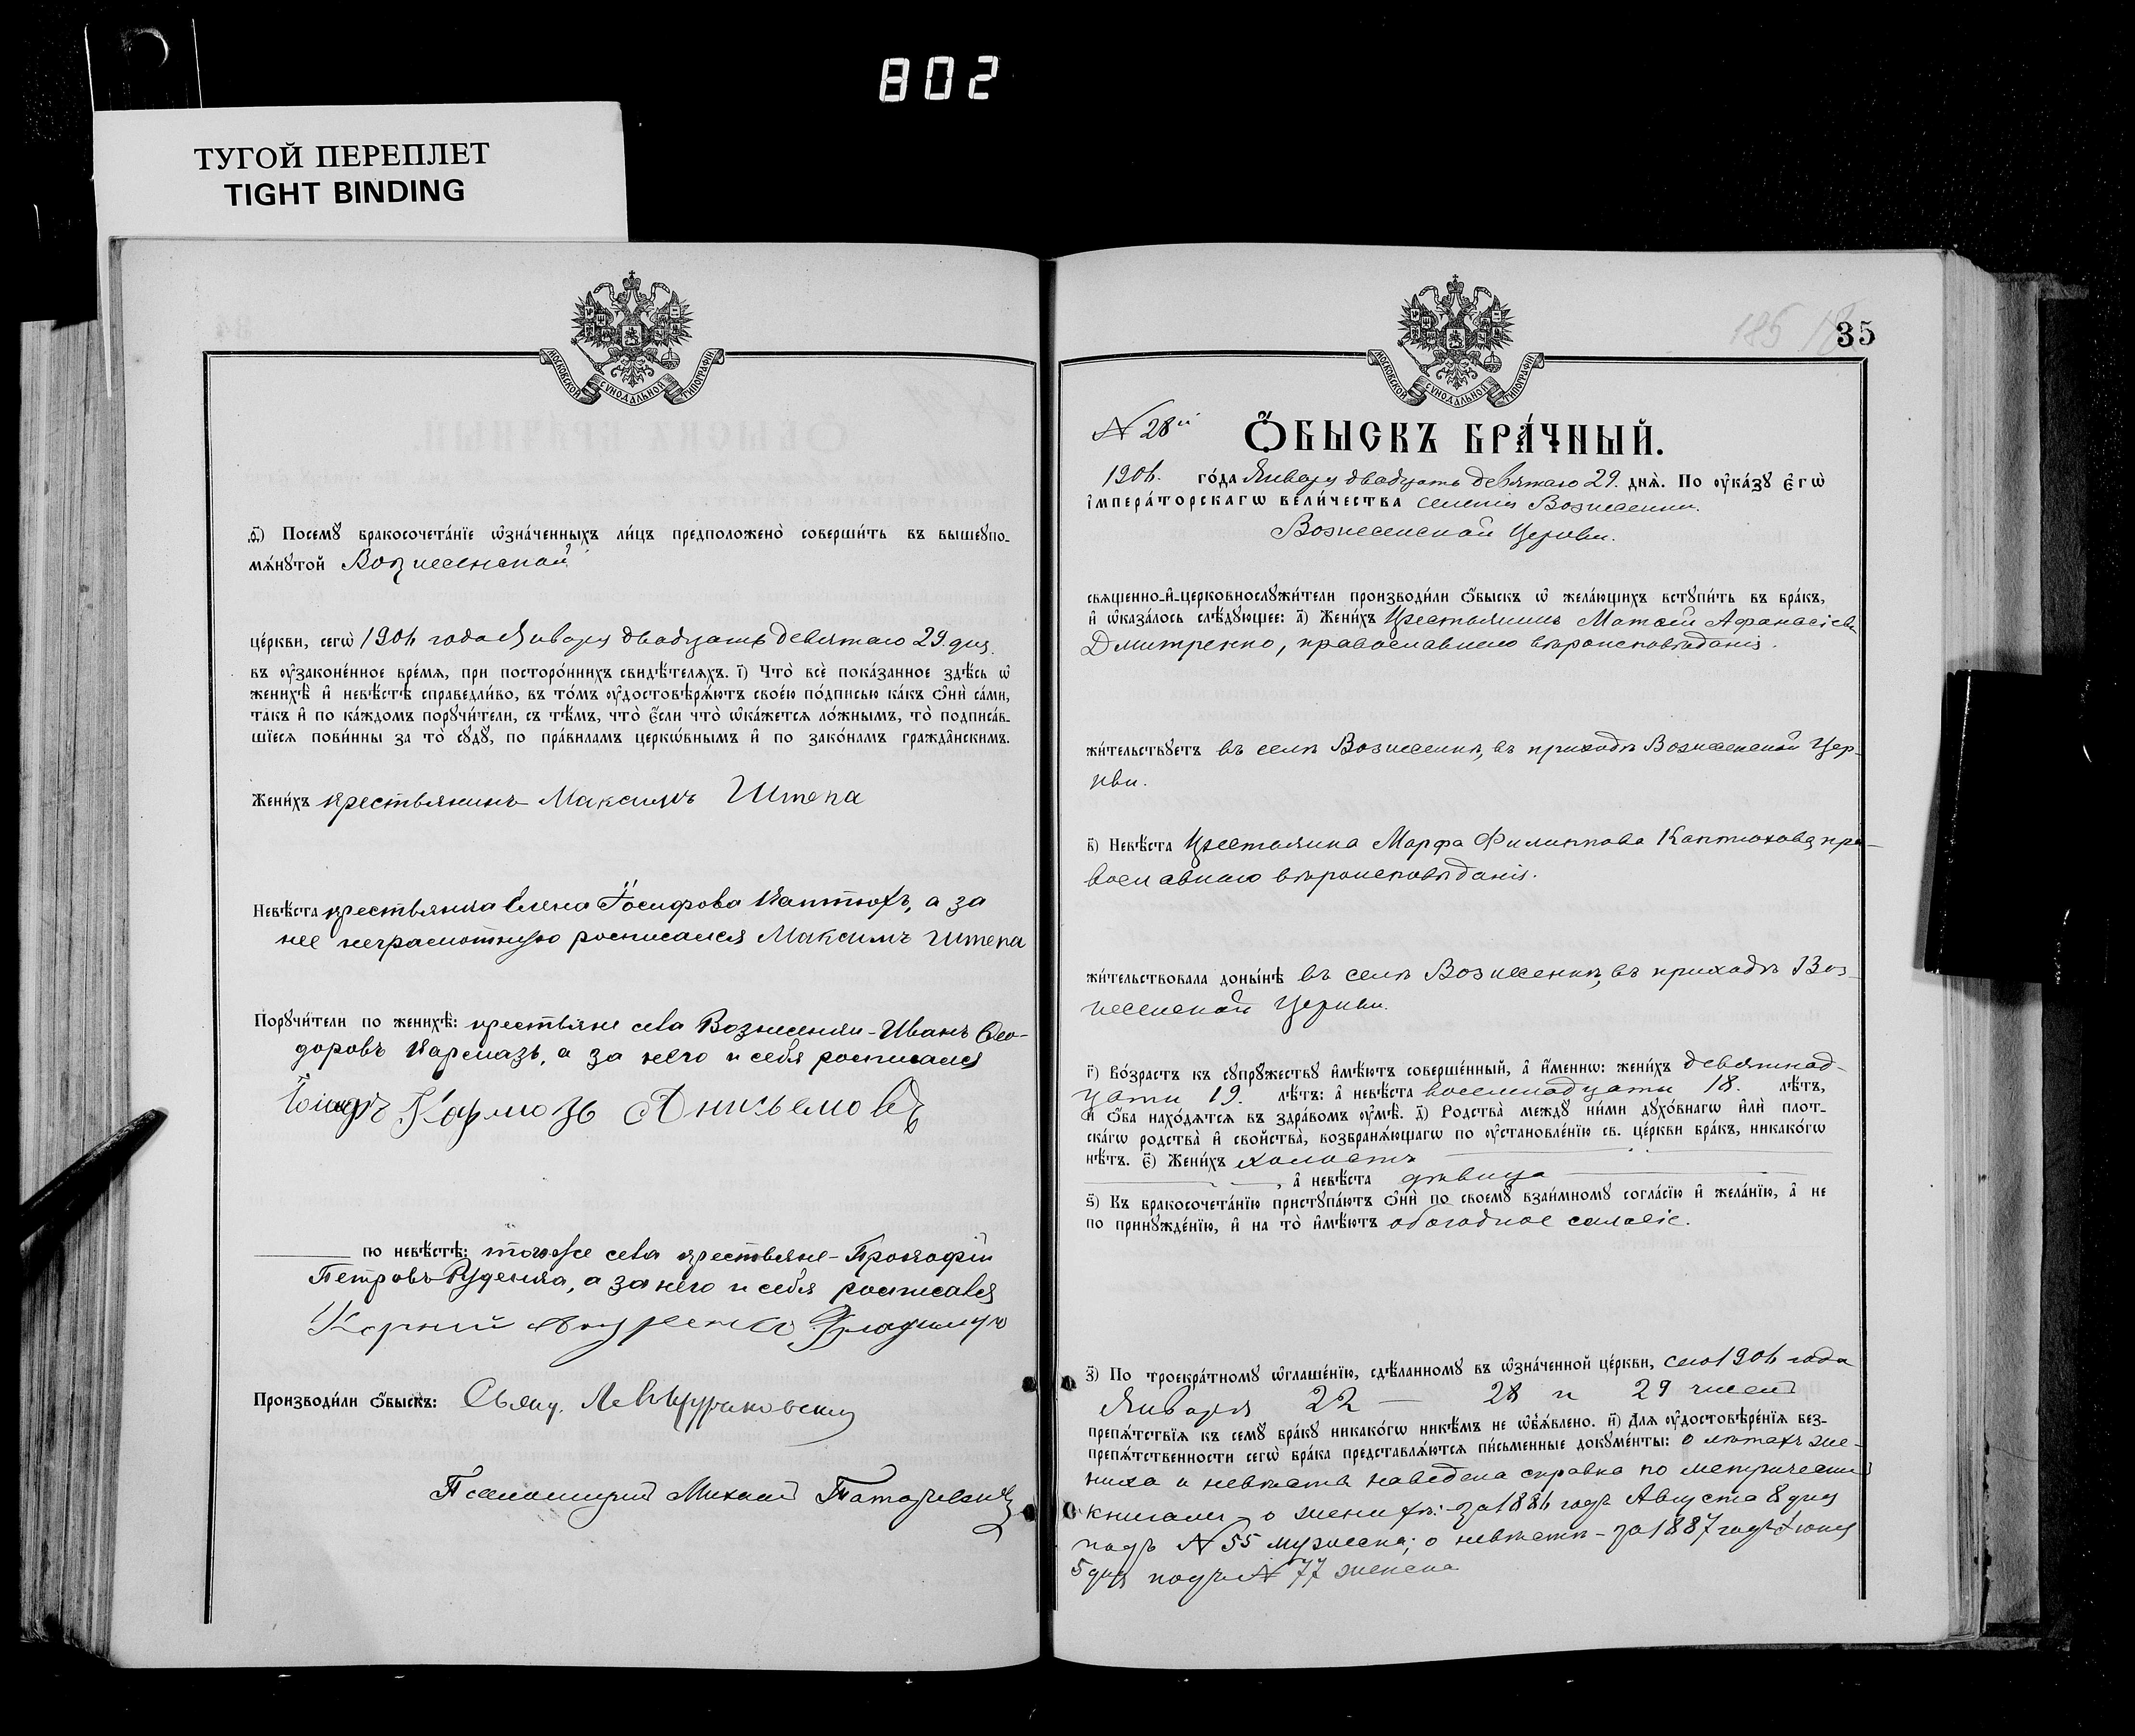 802
ТУГОЙ ПЕРЕПЛЕТ
TIGHT BINDING
МОСКОВСКОЙ СѴНОДАЛЬНОЙ ТИПОГРАФІИ
д҃і) Посемꙋ бракосочета́нїе ѡ҆зна́ченныхъ ли́цъ предположено̀ соверши́ть въ вышеꙋпо-
мѧ́нꙋтой Вознесенской
це́ркви, сегѡ̀ 1906 года Января двадцать девятаго 29. дня
въ ᲂу҆законе́нное вре́мѧ, при посторо́ннихъ свидѣ́телѧхъ. і҃) Что̀ всѐ пока́занное здѣ́сь ѡ҆
женихѣ̀ и҆ невѣ́стѣ справедли́во, въ то́мъ ᲂу҆достовѣрѧ́ютъ свое́ю по́дписью ка́къ ѻ҆нѝ са́ми,
та́къ и҆ по ка́ждомъ порꙋчи́тели, съ тѣ́мъ, что̀ є҆́сли что̀ ѡ҆ка́жетсѧ ло́жнымъ, то̀ подписа́в-
шїесѧ пови́нны за то̀ сꙋдꙋ̀, по пра́виламъ церкѡ́внымъ и҆ по зако́намъ гражда̑нскимъ.
Жени́хъ крестьянинъ Максимъ Штепа
Невѣ́ста крестьянка Елена Іосифова Каптюхъ, а за
нее неграмотную росписался Максимъ Штепа
Порꙋчи́тели по женихѣ̀: крестьяне села Вознесенки - Иванъ Ѳео-
доровъ Кармазь, а за него и себя росписался
Іосифъ Кармозь
по невѣ́стѣ: тогоже села крестьяне - Прокофій
Петровъ Руденка, а за него и себя росписался
Корний
Производи́ли ѻ҆́быскъ: Свящ.
Псаломщикъ Михаилъ
МОСКОВСКОЙ СѴНОДАЛЬНОЙ ТИПОГРАФІИ
185 18
35
N 28й
Ѻ҆́БЫСКЪ БРА́ЧНЫЙ.
1906. го́да Января двадцать девятаго 29. днѧ̀. По ᲂу҆ка́зꙋ Є҆гѡ̀
і҆мпера́торскагѡ вели́чества селенія Вознесенки.
Вознесенской Церкви.
свѧщенно-и҆-церковнослꙋжи́тели производи́ли ѻ҆́быскъ ѡ҆ жела́ющихъ встꙋпи́ть въ бра́къ,
и҆ ѡ҆каза́лось слѣ́дꙋющее: а҃) Жени́хъ Крестьянинъ Матѳей Афанасіевъ
Дмитренко, православнаго вѣроисповѣданія.
жи́тельствꙋетъ въ селѣ Вознесенкѣ, въ приходѣ Вознесенской Цер-
кви.
в҃) Невѣ́ста Крестьянка Марфа Филиппова Каптюхова, пра-
вославнаго вѣроисповѣданія.
жи́тельствовала доны́нѣ въ селѣ Вознесенкѣ, въ приходѣ Воз-
несенской Церкви.
г҃) Во́зрастъ къ сꙋпрꙋ́жествꙋ и҆мѣ́ютъ соверше́нный, а҆ и҆́меннѡ: жени́хъ девятнад-
цати 19. лѣ́тъ: а҆ невѣ́ста восемнадцати 18. лѣ́тъ,
и҆ ѻ҆́ба нахо́дѧтсѧ въ здра́вомъ ᲂу҆мѣ̀. д҃) Родства̀ междꙋ̀ ни́ми дꙋхо́внагѡ и҆лѝ плот-
ска́гѡ родства̀ и҆ сво́йства̀, возбранѧ́ющагѡ по ᲂу҆становле́нїю св. це́ркви бра́къ, никако́гѡ
нѣ́тъ. є҃) Жени́хъ холостъ
, а҆ невѣ́ста дѣвица
ѕ҃) Къ бракосочета́нїю пристꙋпа́ютъ ѻ҆нѝ по своемꙋ̀ взаи́мномꙋ согла́сїю и҆ жела́нїю, а҆ не
по принꙋжде́нїю, и҆ на то̀ и҆мѣ́ютъ обогодное согласіе.
з҃) По троекра́тномꙋ ѡ҆глаше́нїю, сдѣ́ланномꙋ въ ѡ҆зна́ченной це́ркви, сего 1906 года
Января 22 — 28 и 29 чиселъ
препѧ́тствїѧ къ семꙋ̀ бра́кꙋ никако́гѡ никѣ́мъ не ѡ҆б̾ѧ́влено. и҃) Для ᲂу҆достовѣре́нїѧ без-
препѧ́тственности сегѡ̀ бра́ка представлѧ́ютсѧ пи́сьменные докꙋме́нты: о лѣтахъ же-
ниха и невѣсты наведена справка по метрическимъ
книгамъ о женихѣ: за 1886 годъ Августа 8 дня
подъ N 55 мужеска; о невѣстѣ - за 1887 годъ Іюня
5 дня подъ N 77 женска